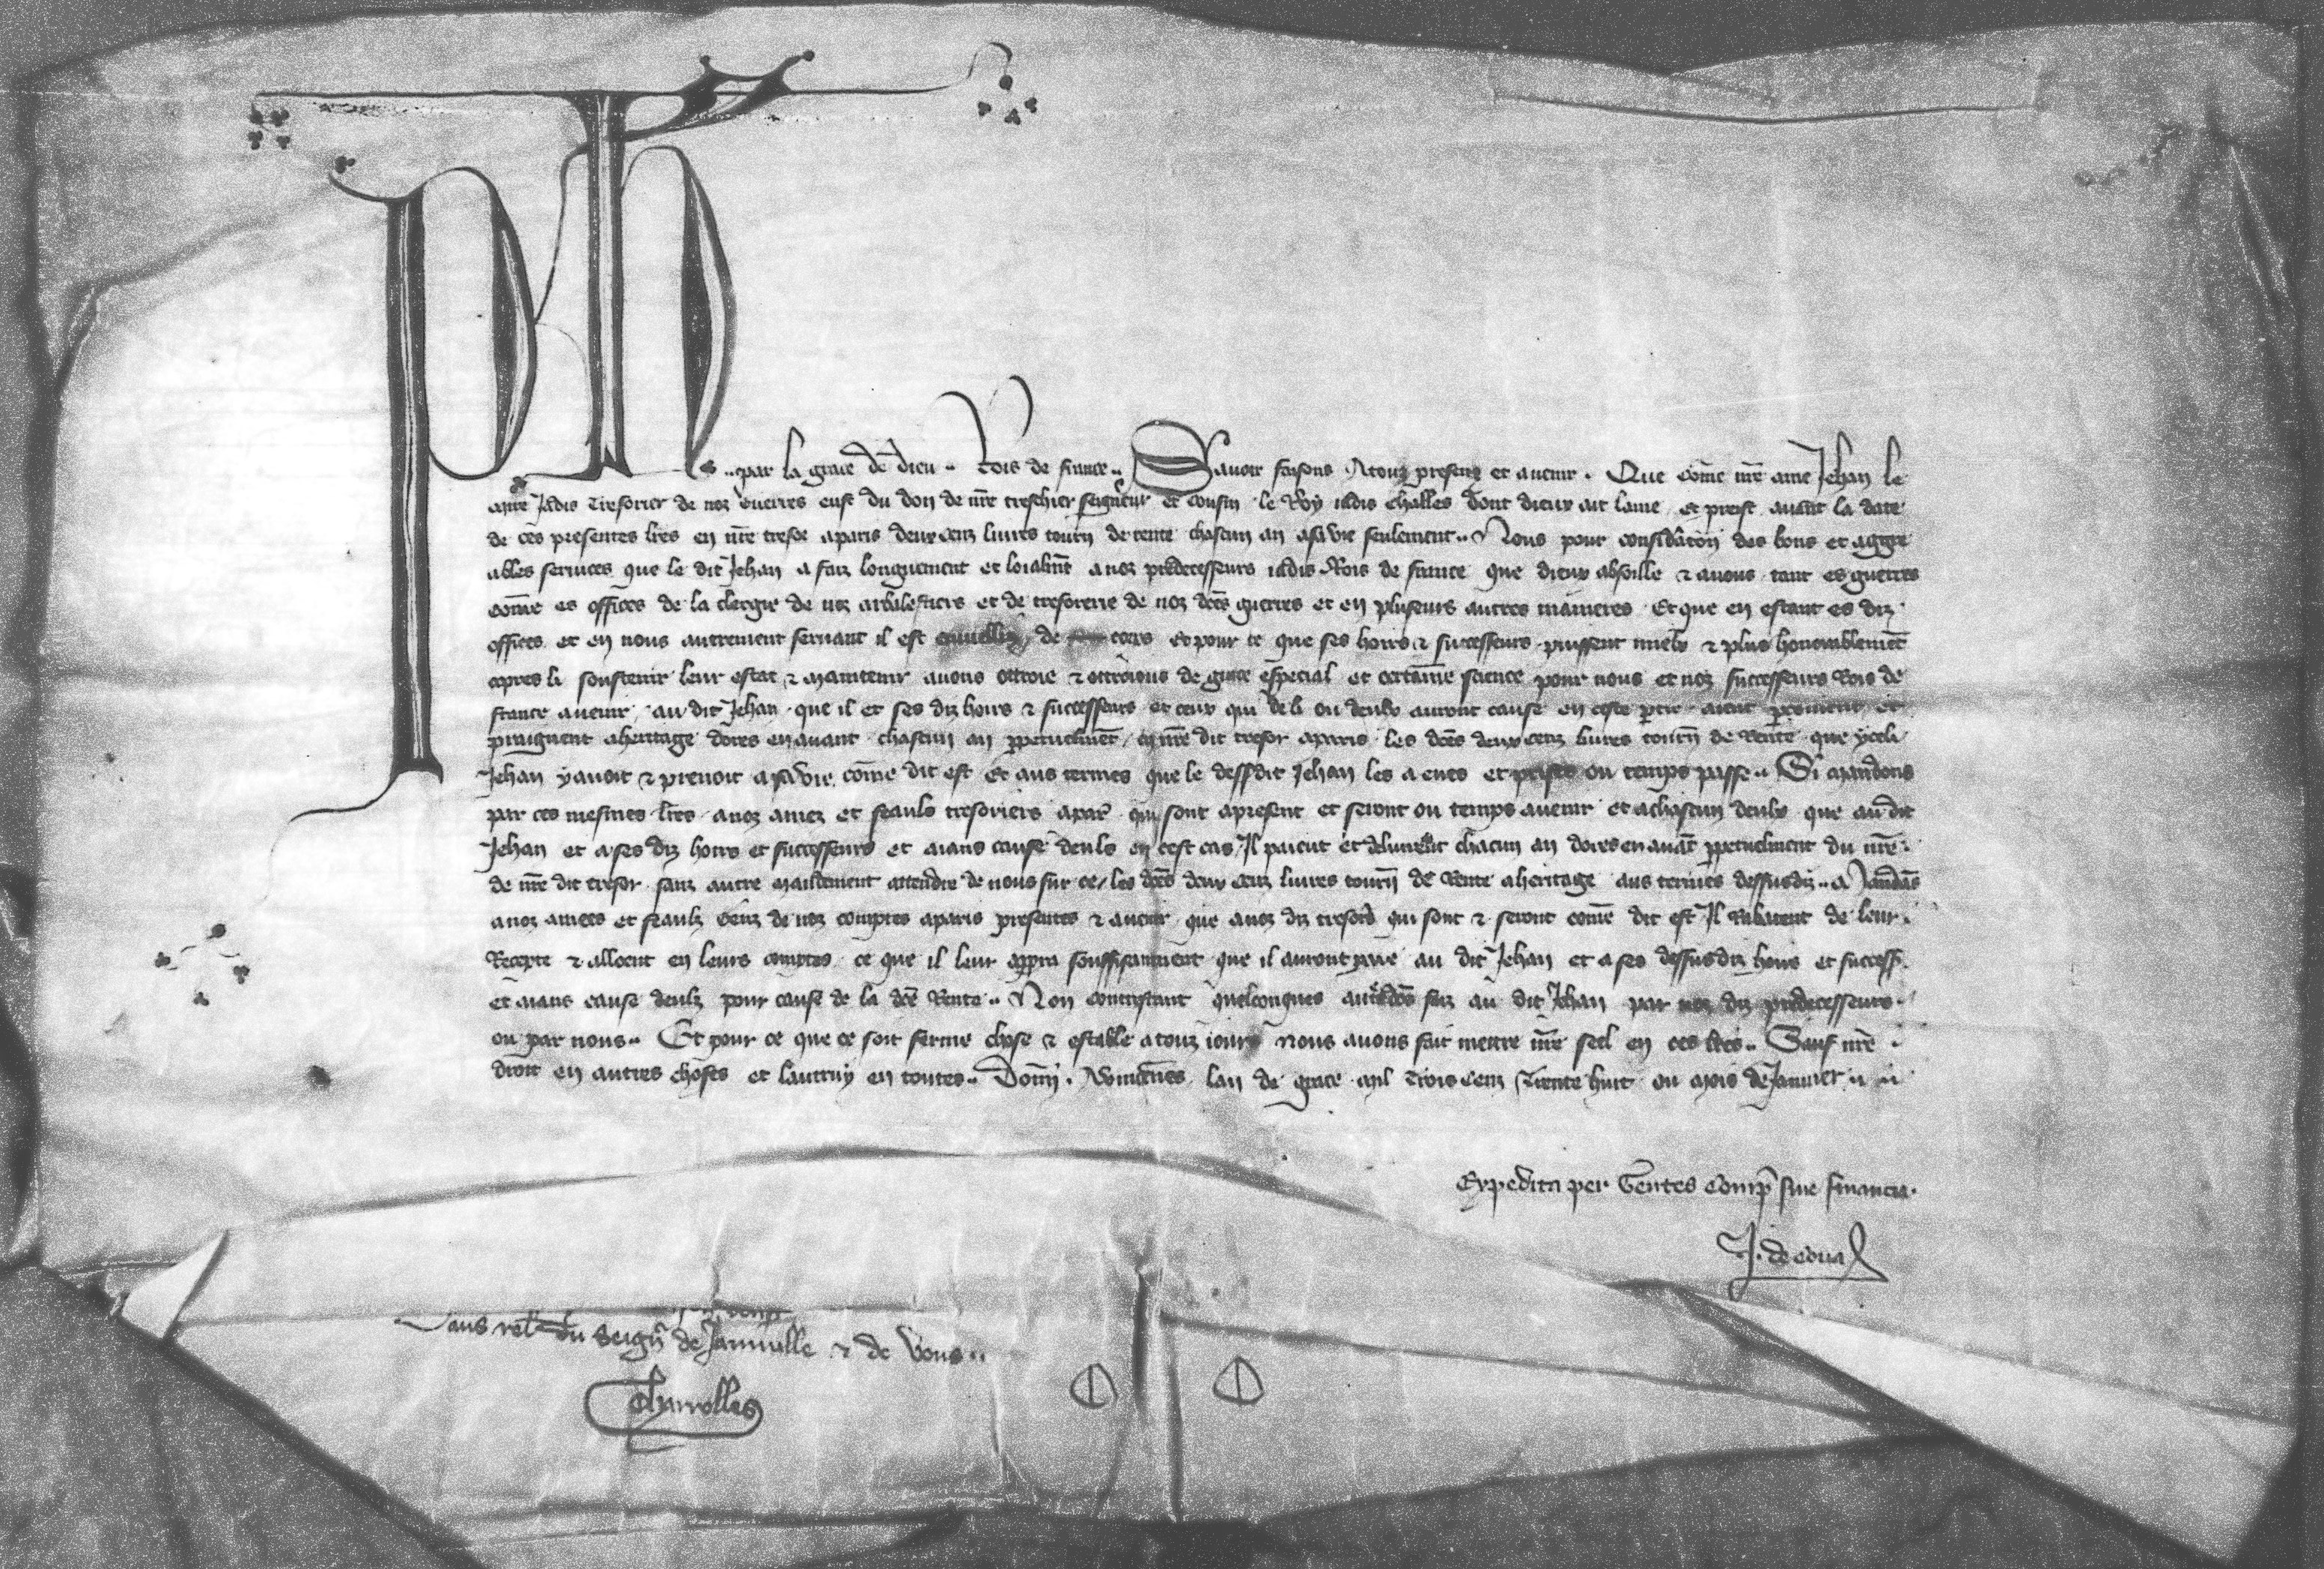 Ph̃s .. par la grace de dieu .. Rois de france .. Savoir faisons A touz presenz et avenir . Que com̃e nr̃e ame Jehan le
mire Jadis Tresorier de noz Guerres eust du don de nr̃e treschier seigneur et cousin le Roy iadis Challes dont dieux ait lame et preist avant la date
de ces presentes lr̃es en nr̃e tresor a paris deux cenz livres tourñ de rente chascun an a sa vie seulement .. Nous pour considẽracion des bons et aggre
ables services que le dit Jehan a faiz longuement et loialmẽt a noz predecesseurs iadis Rois de france que dieux absoille & a nous tant es guerres
com̃e es offices de la clergie de noz arbalestiers et de tresorerie de noz dc̃es guerres et en pluseurs autres manieres . Et que en estant es diz
offices et en nous autrement servant il est envielliz de corps et pour ce que ses hoirs & successeurs puissent miex & plus honorablemẽt
apres li soustenir leur estat & maintenir avons ottroie & ottroions de grace especial et certaine science pour nous et noz successeurs Rois de
france avenir au dit Jehan que il et ses diz hoirs & successeurs et ceux qui de li ou deulx auront cause en ceste ptie aient pcoivent et
praignent a heritage dores en avant chascun an ppetuelmẽt en nr̃e dit tresor a paris les dc̃es deux cenz livres tourñ de Rente que yceli
Jehan y avoit & prenoit a sa vie com̃e dit est Et aus termes que le dessdit Jehan les a eues et prises ou temps passe .. Si mandons
par ces mesmes lr̃es a noz amez et feaulx tresoriers a par̃ qui sont a present et seront ou temps avenir et a chascun deulx que au dit
Jehan et a ses diz hoirs et successeurs et aians cause deuls en cest cas Il paient et delivrent chacun an dores en avãt ppetuelment du nr̃e
de nr̃e dit tresor sanz autre mandement attendre de nous sur ce les dc̃es deux cenz livres tourñ de Rente a heritage aus termes dessusdiz .. Mandons
a noz amees et feaulz Genz de noz comptes a paris presentes & avenir que a noz diz tresorẽs qui sont & seront com̃e dit est Il Rabatent de leur
Recepte & alloent en leurs comptes ce que il leur apprra souffisamment que il auront paie au dit Jehan et a ses dessusdiz hoirs et success̃
et aians cause deulz pour cause de la dc̃e Rente .. Non contrestant quelconques autres dons faiz au dit Jehan par noz diz predecesseurs
ou par nous .. Et pour ce que ce soit ferme chose & estable a touz iours Nous avons fait mettre nr̃e seel en ces lr̃es .. Sauf nr̃e
droit en autres choses et lautruy en toutes .. Donñ . A Vincenes lan de grace mil Trois Cenz Trente huit ou mois de Janvier
Expedita per Gentes Comp̃ sine financia .
J. de Cona
du Seigñ de Janville & de Vous ..
Charrolles